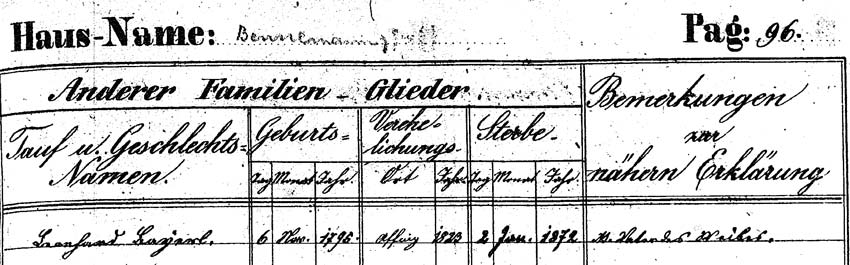 Haus-Name: Pag: 96.
Anderer Familien-Glieder
Bemerkungen
zur
nähern Erklärung
Tauf u. Geschlechts=
Namen.
Geburts=
Verehe-
lichungs-
Sterbe-
Tag Monat Jahr. Ort Jahr. Tag Monat Jahr.
Leonhard Bayerl. 6 Nov. 1796. 1823 2 Jan. 1872 Vater des Weibes.